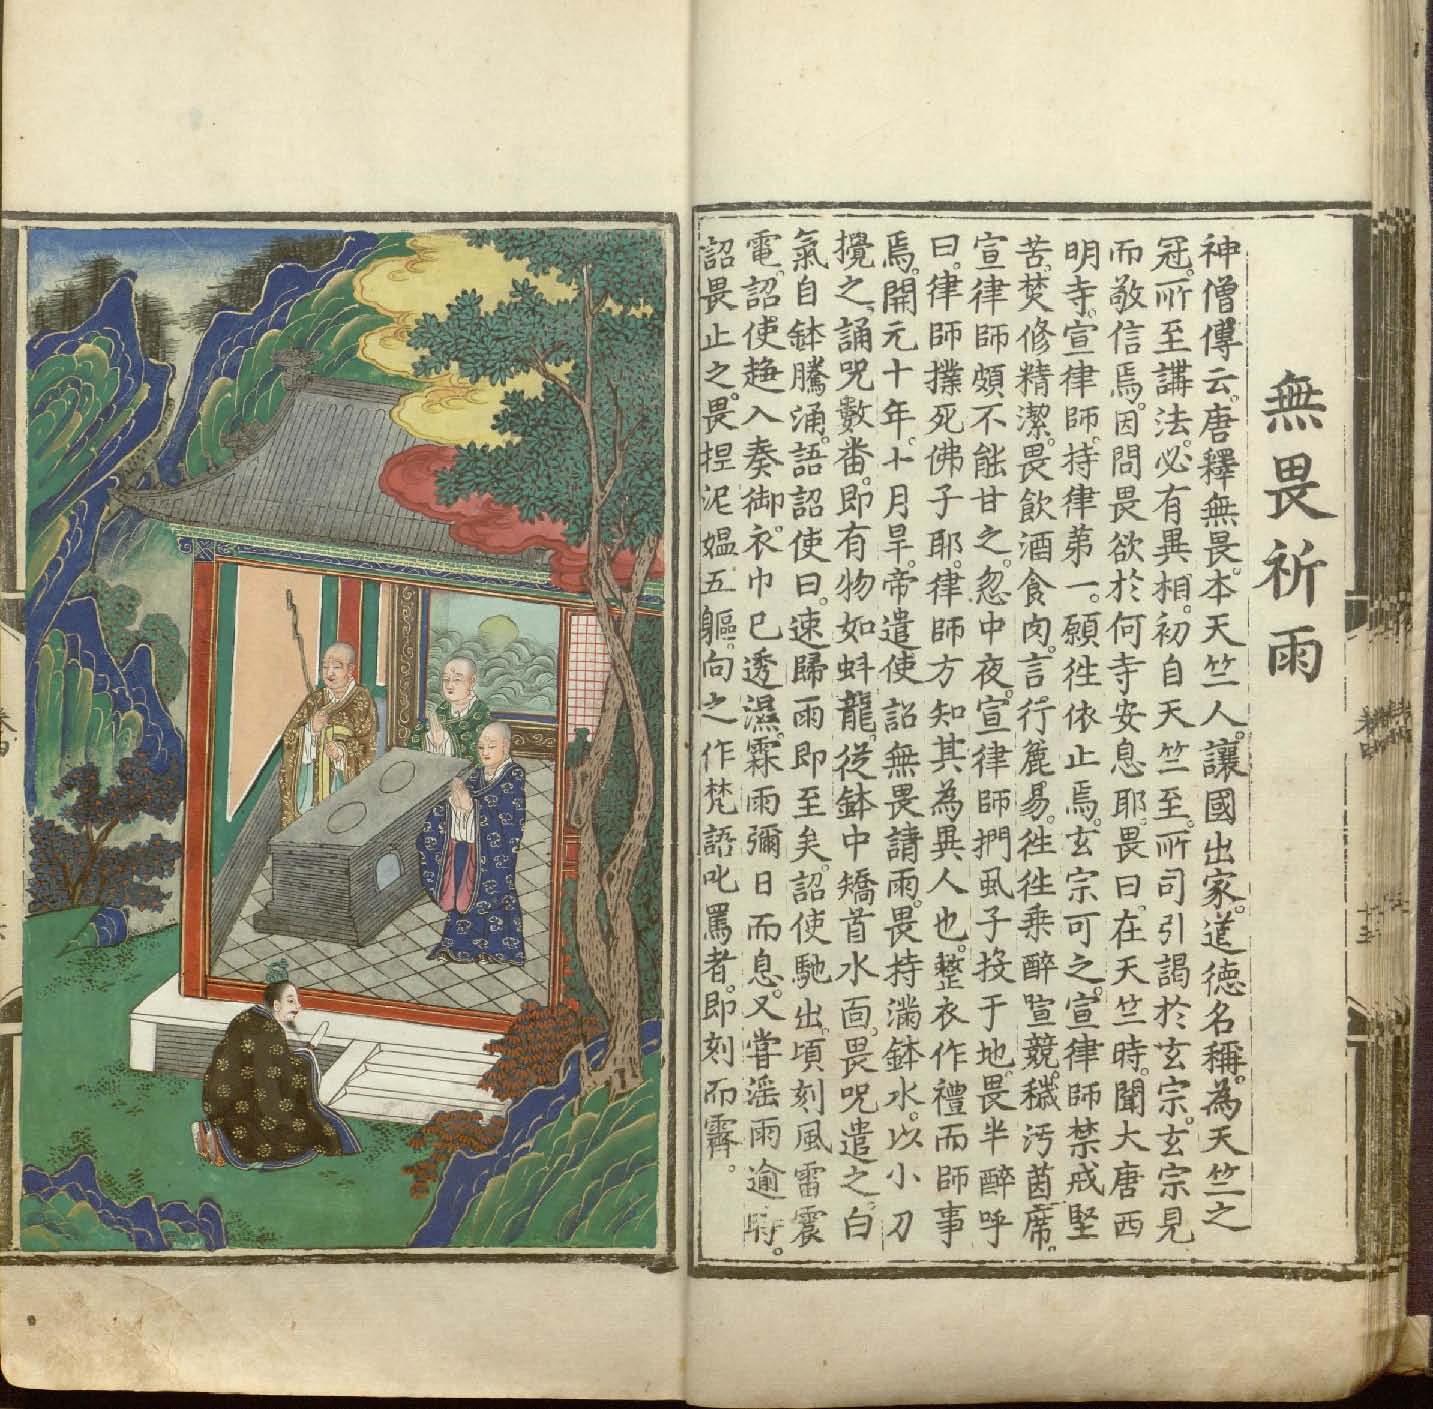 無畏祈雨
神僧傳云。唐釋無畏。本天竺人。讓國出家。道德名稱。為天竺之
冠。所至講法。必有異相。初自天竺至。所司引謁於玄宗。玄宗見
而敬信焉。因問畏欲於何寺安息耶。畏曰。在天竺時。聞大唐西
明寺。宣律師。持律第一。願徃依止焉。玄宗可之。宣律師禁戒堅
苦。焚修精潔。畏飲酒食肉。言行麄易。徃徃乗醉喧競。穢污茵席。
宣律師頗不能甘之。忽中夜。宣律師捫虱子投于地。畏半醉呼
曰。律師撲死佛子耶。律師方知其為異人也。整衣作禮而師事
焉。開元十年。十月旱。帝遣使詔無畏請雨。畏持滿鉢水。以小刀
攪之。誦呪數番。即有物如蚪龍。從鉢中矯首水面。畏呪遣之。白
氣自鉢騰涌。語詔使曰。速歸雨即至矣。詔使馳出。頃刻風雷震
電。詔使趨入奏御。衣巾已透濕。霖雨彌日而息。又嘗滛雨逾時。
詔畏止之。畏捏泥媼五軀。向之作梵語叱罵者。即刻而霽。